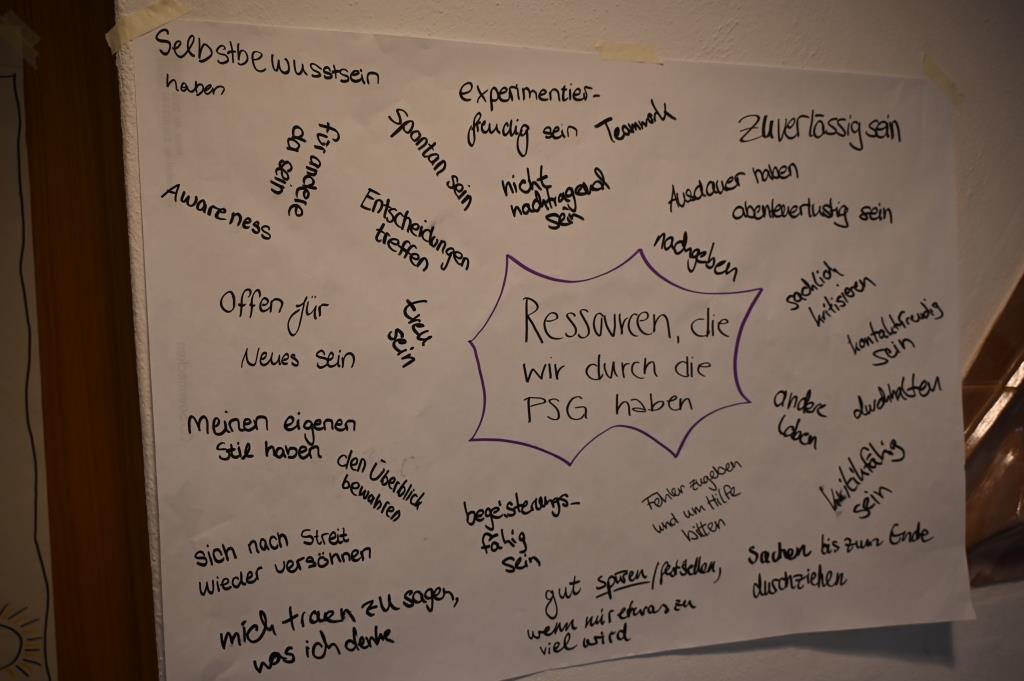 Selbstbewusstsein
haben
für andere
da sein
Awareness
spontan sein
Entscheidungen
treffen
experimentier-
freudig sein
Teamwork
nicht
nachtragend
sein
zuverlässig sein
Ausdauer haben
abenteuerlustig sein
nachgeben
sachlich
kritisieren
kontaktfreudig
sein
Offen für
Neues sein
treu
sein
Ressourcen, die
wir durch die
PSG haben
andere
loben
durchhalten
kritikfähig
sein
Meinen eigenen
Stil haben
den Überblick
bewahren
begeisterungs-
fähig
sein
Fehler zugeben
und um Hilfe
bitten
sich nach Streit
wieder versöhnen
mich trauen zu sagen,
was ich denke
gut spüren/feststellen,
wenn mir etwas zu
viel wird
Sachen bis zum Ende
durchziehen